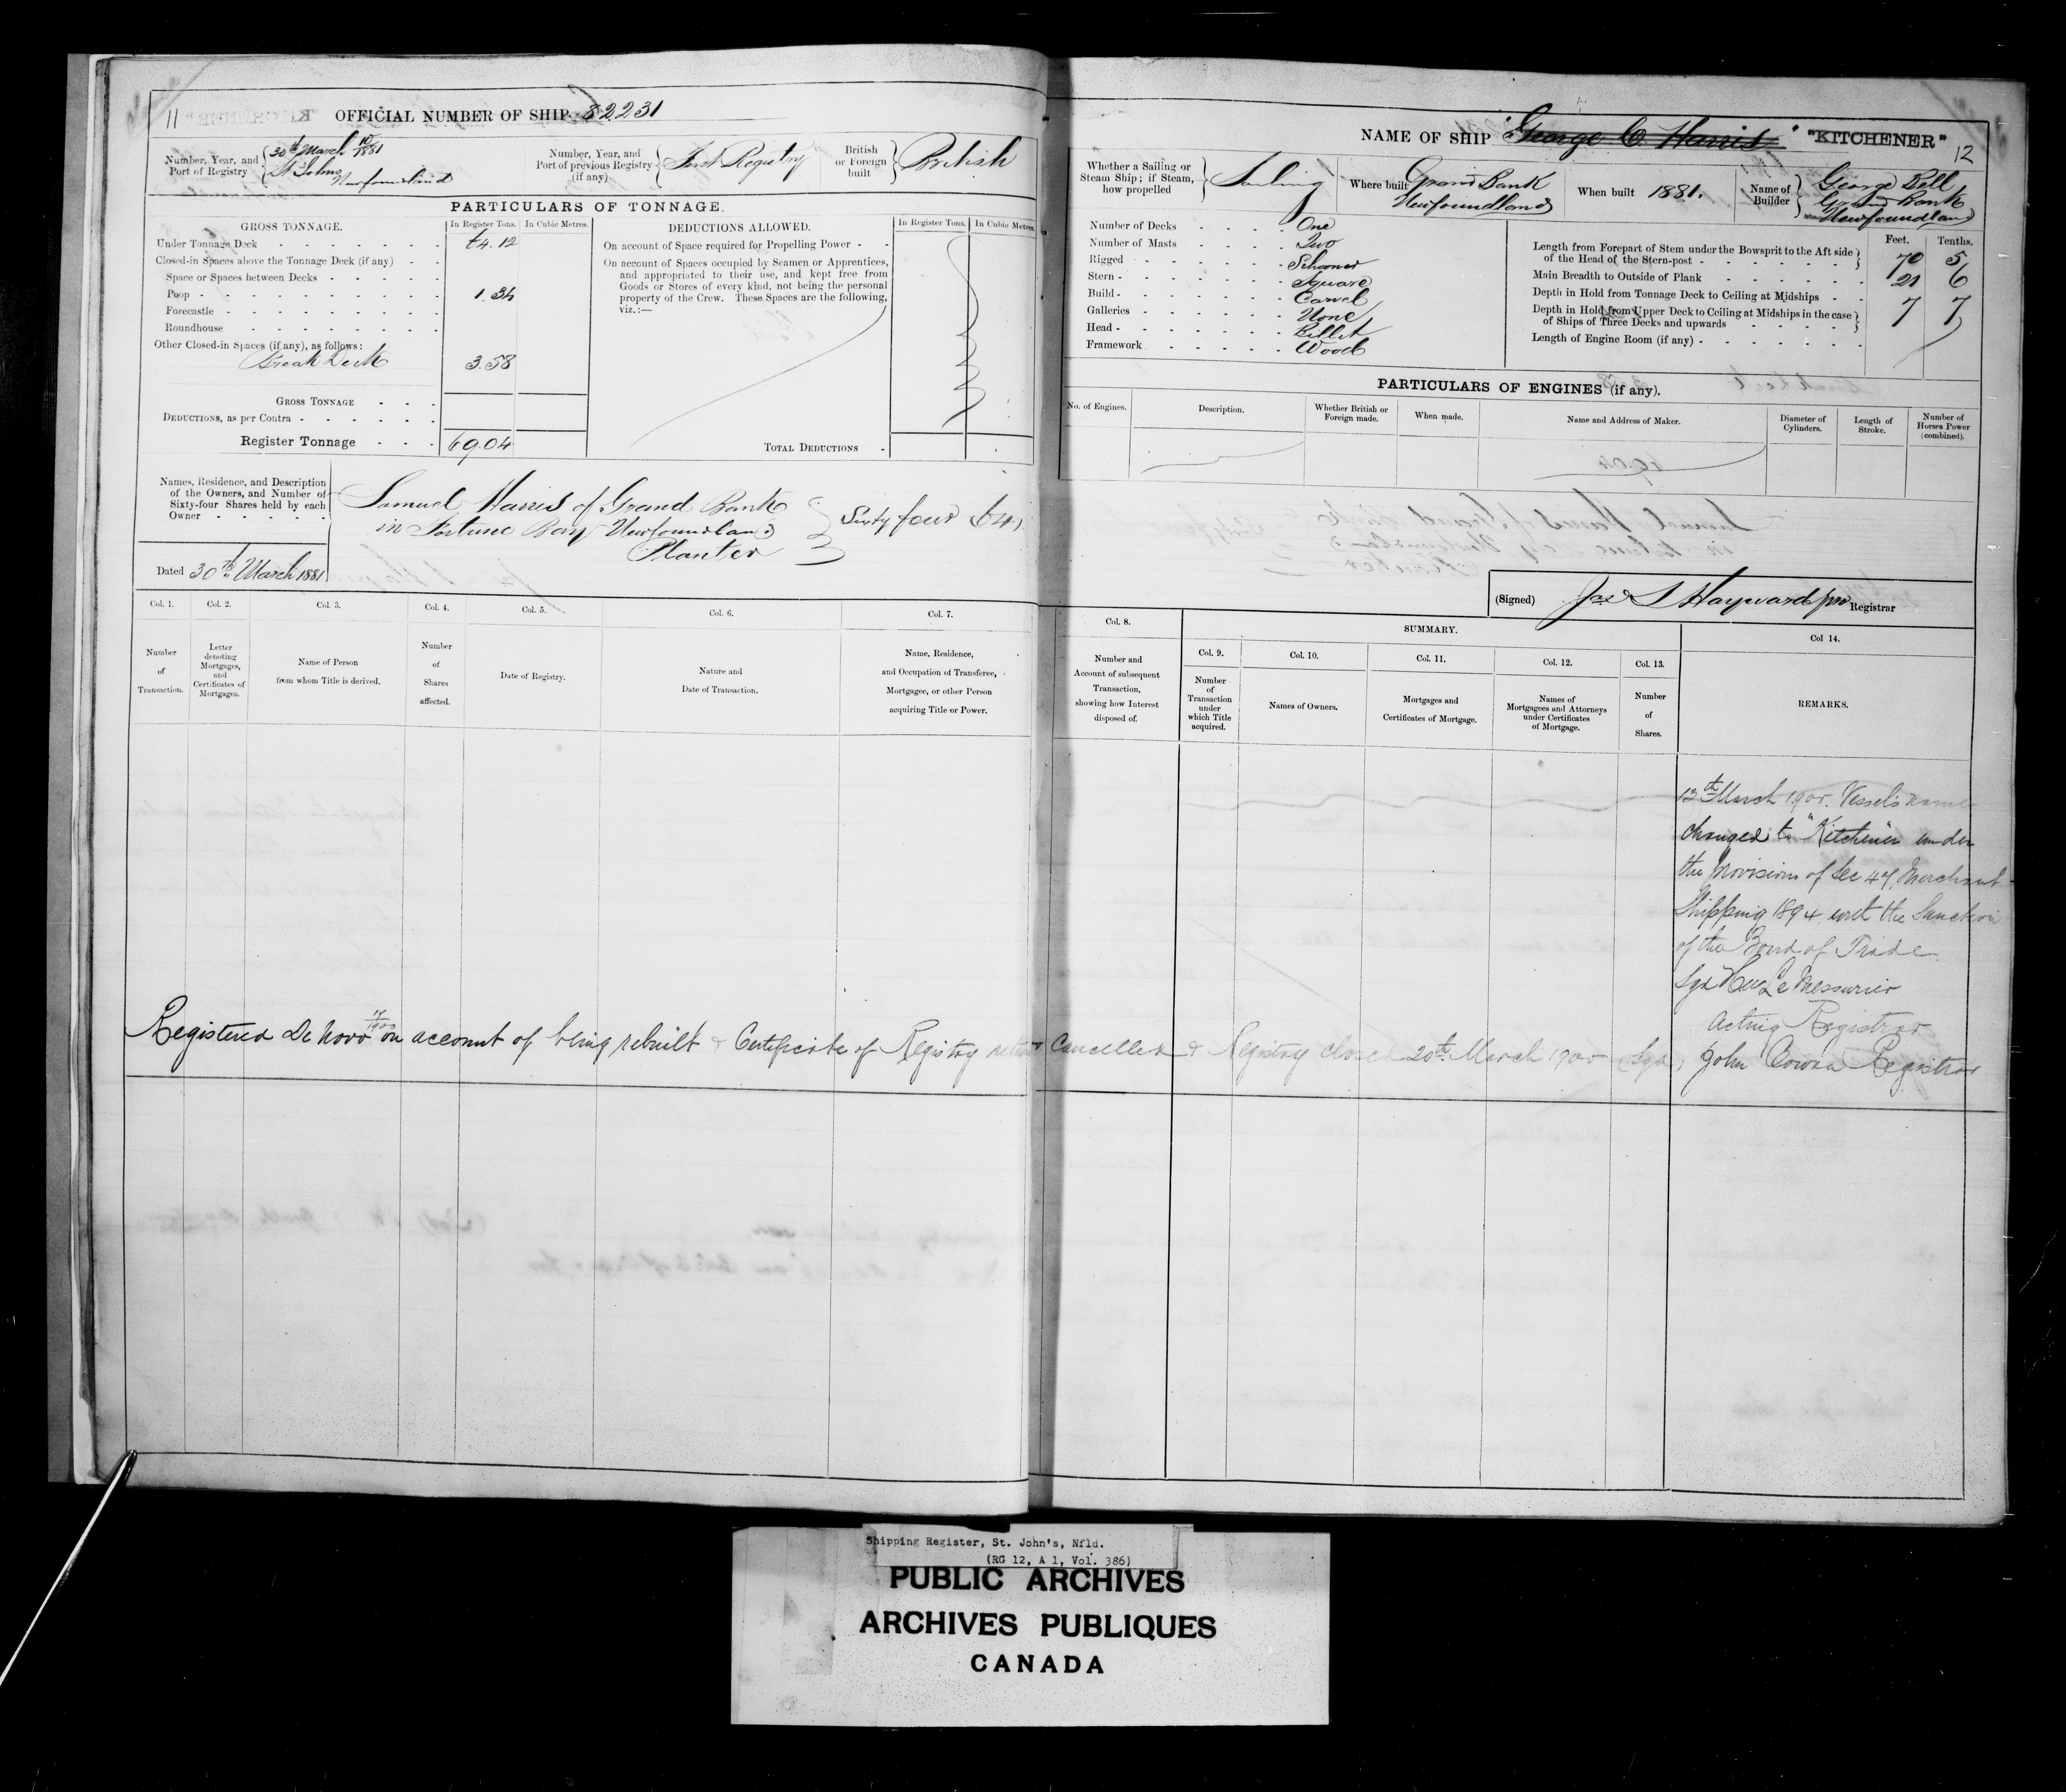 11
OFFICIAL NUMBER OF SHIP 82231
Number, Year, and Port of Registry
30th March 10/1881
St Johns Newfoundland
Number, Year, and Port of previous Registry (if any)
First Registry
British or Foreign built
British
PARTICULARS OF TONNAGE.
GROSS TONNAGE.
In Register Tons.
In Cubic Metres.
Under Tonnage Deck 64.12
Closed-in Spaces above the Tonnage Deck (if any)
Space or Spaces between Decks
Poop 1.34
Forecastle
Roundhouse
Other Closed-in Spaces (if any), as follows:
Break Deck 3.58
GROSS TONNAGE
DEDUCTIONS, as per Contra
Register Tonnage 69.04
DEDUCTIONS ALLOWED.
In Register Tons.
In Cubic Metres.
On account of Space required for Propelling Power
On account of Spaces occupied by Seamen or Apprentices,
and appropriated to their use, and kept free from
Goods or Stores of every kind, not being the personal
property of the Crew. These Spaces are the following,
viz.:—
TOTAL DEDUCTIONS
Names, Residence, and Description
of the Owners, and Number of
Sixty-four Shares held by each
Owner
Samuel Harris of Grand Bank
in Fortune Bay Newfoundland
Planter
Sixty four (64)
Dated 30th March 1881
Col. 1.
Number of Transaction.
Col. 2.
Letter denoting Mortgages, and Certificates of Mortgages.
Col. 3.
Name of Person from whom Title is derived.
Col. 4.
Number of Shares affected.
Col. 5.
Date of Registry.
Col. 6.
Nature and Date of Transaction.
Col. 7.
Name, Residence, and Occupation of Transferee, Mortgagee, or other Person acquiring Title or Power.
NAME OF SHIP "George C. Harris" "KITCHENER"
12
Whether a Sailing or Steam Ship; if Steam, how propelled
Sailing
Where built
Grand Bank
Newfoundland
When built 1881.
Name of Builder
George Bell
Grand Bank
Newfoundland
Number of Decks One
Number of Masts Two
Rigged Schooner
Stern Square
Build Carvel
Galleries None
Head Billet
Framework Wood
Feet. Tenths.
Length from Forepart of Stem under the Bowsprit to the Aft side
of the Head of the Stern-post 70 5
Main Breadth to Outside of Plank 21 6
Depth in Hold from Tonnage Deck to Ceiling at Midships 7 7
Depth in Hold from Upper Deck to Ceiling at Midships in the case
of Ships of Three Decks and upwards
Length of Engine Room (if any)
PARTICULARS OF ENGINES (if any).
No. of Engines.
Description.
Whether British or Foreign made.
When made.
Name and Address of Maker.
Diameter of Cylinders.
Length of Stroke.
Number of Horses Power (combined).
(Signed) Jas S Hayward pro Registrar
Col. 8.
Number and Account of subsequent Transaction, showing how Interest disposed of.
SUMMARY.
Col. 9.
Number of Transaction under which Title acquired.
Col. 10.
Names of Owners.
Col. 11.
Mortgages and Certificates of Mortgage.
Col. 12.
Names of Mortgagees and Attorneys under Certificates of Mortgage.
Col. 13.
Number of Shares.
Col 14.
REMARKS.
13th March 1900. Vessels name
changed to "Kitchener" under
the provisions of Sec 47 Merchant
Shipping 1894 with the Sanction
of the Board of Trade
Sgd LeMessurier
Acting Registrar
Registered De Novo 17/1900 on account of being rebuilt & Certificate of Registry Cancelled & Registry closed 20th March 1900 (Sgd) John Cowan Registrar
Shipping Register, St. John's, Nfld.
(RG 12, A 1, Vol. 386)
PUBLIC ARCHIVES
ARCHIVES PUBLIQUES
CANADA